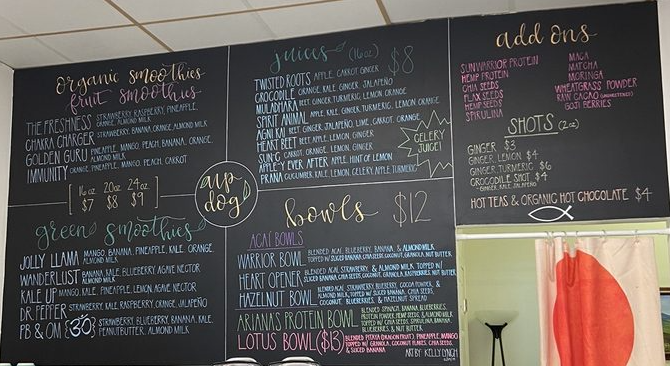 organic smoothies
fruit smoothies
THE FRESHNESS STRAWBERRY, RASPBERRY, PINEAPPLE, ORANGE, ALMOND MILK
CHAKRA CHARGER STRAWBERRY, BANANA ORANGE, ALMOND MILK
GOLDEN GURU PINEAPPLE, MANGO, PEACH, BANANA, ORANGE, ALMOND MILK
IMMUNITY ORANGE, PINEAPPLE, MANGO, PEACH, CARROT
16oz 20oz 24oz
$7 $8 $9
green smoothies
JOLLY LLAMA MANGO, BANANA, PINEAPPLE, KALE, ORANGE
WANDERLUST BANANA, KALE, BLUEBERRY AGAVE NECTOR ALMOND MILK
KALE UP MANGO, KALE, PINEAPPLE, LEMON, AGAVE NECTOR
DR. PEPPER STRAWBERRY, KALE, RASPBERRY, ORANGE, JALAPEÑO
PB & OM {36} STRAWBERRY, BLUEBERRY, BANANA, KALE, PEANUTBUTTER, ALMOND MILK
up dog
juices (16oz) $8
TWISTED ROOTS APPLE, CARROT GINGER
CROCODILE ORANGE, KALE, GINGER, JALAPEÑO
MULADHARA BEET, GINGER, TURMERIC, LEMON, ORANGE
SPIRIT ANIMAL APPLE, KALE, GINGER, TURMERIC, LEMON, ORANGE
AGNI KAI BEET, GINGER, JALAPEÑO, LIME, CARROT, ORANGE
HEART BEET BEET, APPLE, LEMON, GINGER
SUN'C CARROT, ORANGE, LEMON, GINGER
APPLE-Y EVER AFTER APPLE, HINT OF LEMON
PRANA CUCUMBER, KALE, LEMON, CELERY, APPLE, TURMERIC
CELERY JUICE!
bowls $12
ACAI BOWLS
WARRIOR BOWL BLENDED ACAI, BLUEBERRY, BANANA, & ALMOND MILK
TOPPED W/ SLICED BANANA, CHIA SEEDS, COCONUT, GRANOLA, NUT BUTTER
HEART OPENER BLENDED ACAI, STRAWBERRY, & ALMOND MILK, TOPPED W/
SLICED BANANA, CHIA SEEDS, COCONUT, GRANOLA, RASPBERRIES, NUT BUTTER
HAZELNUT BOWL BLENDED ACAI, STRAWBERRY, BLUEBERRY, COCOA POWDER, &
ALMOND MILK, TOPPED W/ SLICED BANANA, CHIA SEEDS,
COCONUT, BLUEBERRIES, & HAZELNUT SPREAD
ARIANA'S PROTEIN BOWL BLENDED SPINACH, BANANA, BLUEBERRIES,
PROTEIN POWDER, HEMP SEEDS, & ALMOND MILK,
TOPPED W/ CHIA SEEDS, SPIRULINA, BANANA,
BLUEBERRIES, & NUT BUTTER
LOTUS BOWL ($13) BLENDED PITAYA (DRAGON FRUIT), PINEAPPLE, MANGO
TOPPED W/ GRANOLA, COCONUT FLAKES, CHIA SEEDS,
& SLICED BANANA
ART BY: KELLY LYNCH
add ons
SUNWARRIOR PROTEIN
HEMP PROTEIN
CHIA SEEDS
FLAX SEEDS
HEMP SEEDS
SPIRULINA
MACA
MATCHA
MORINGA
WHEATGRASS POWDER
RAW CACAO (UNSWEETENED)
GOJI BERRIES
SHOTS (2oz)
GINGER $3
GINGER, LEMON $4
GINGER, TURMERIC $6
CROCODILE SHOT $4
- GINGER, KALE, JALAPEÑO
HOT TEAS & ORGANIC HOT CHOCOLATE $4